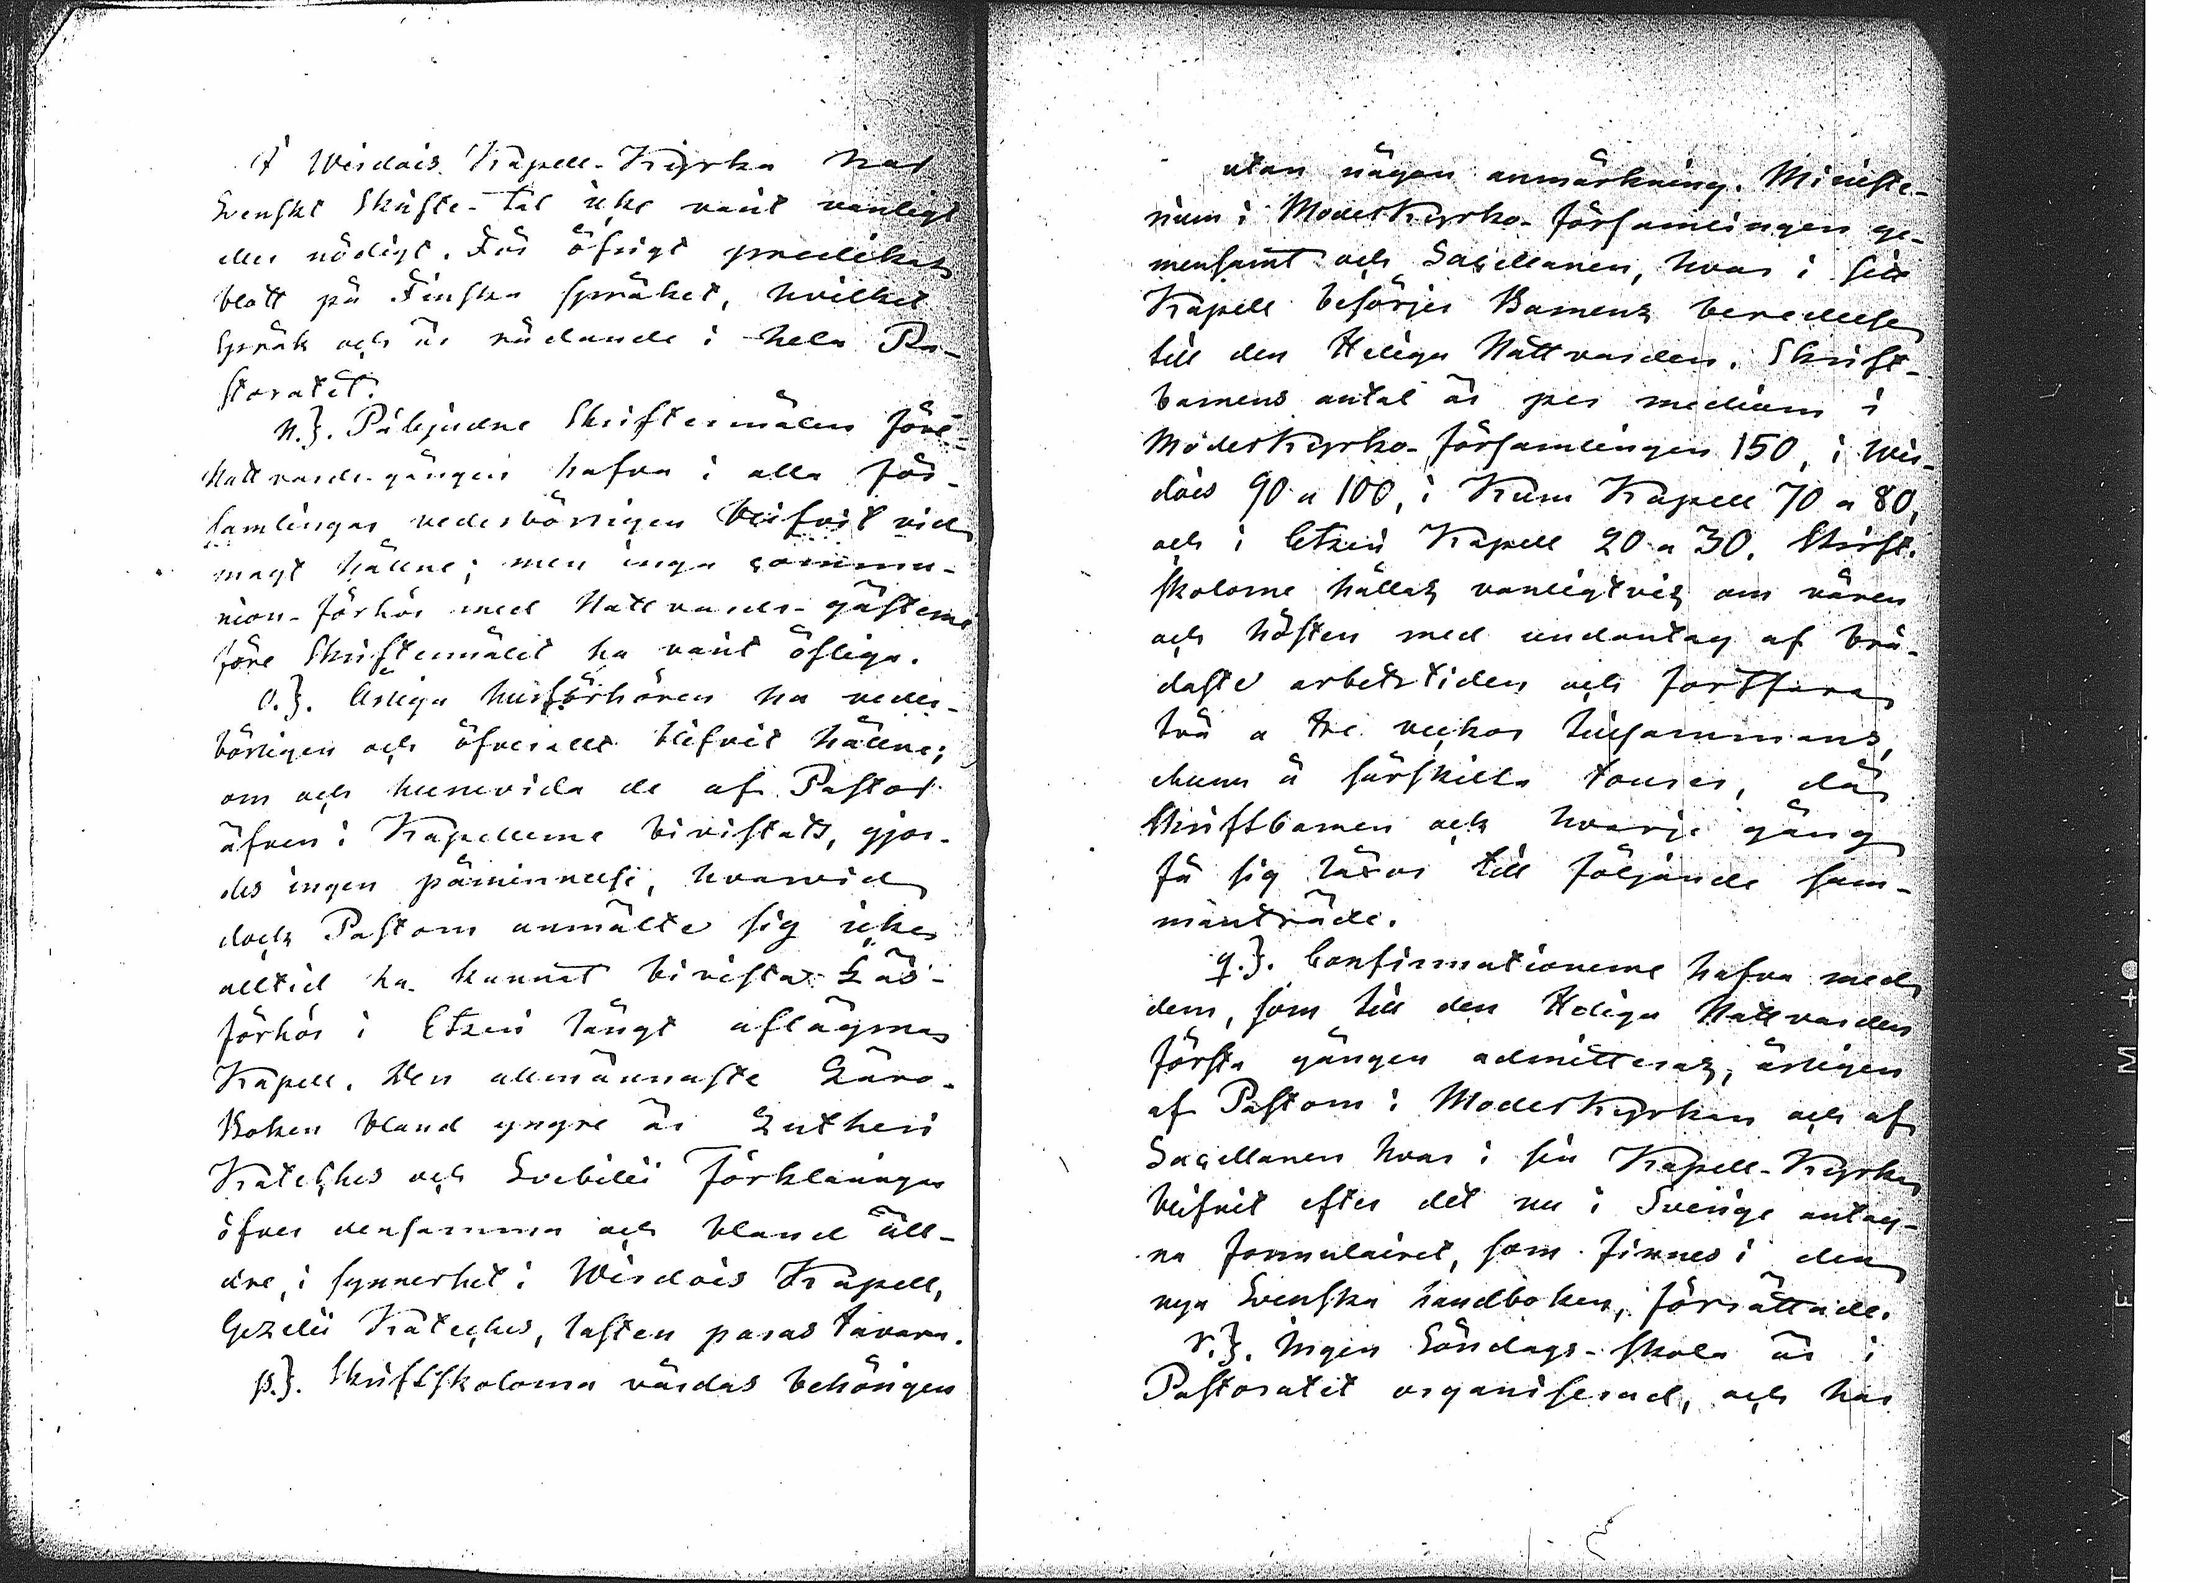 I Wirdois Kapell-Kyrka har
Svenskt Skrifte-tal icke varit vanligt
eller nödigt. För öfrigt predikas
blott på Finska språket, hvilket
språk och är rådande i hela Pa-
storatet.
n.}. Påbjudne Skriftermålen före
Nattvards-gången hafva i alla för-
samlingar vederbörligen blifvit vid
magt hållne; men inga commu-
nion-förhör med Nattvards-gästerne
före Skriftermålet ha varit öfliga.
o.}. Årliga husförhören ha veder-
börligen och öfverallt blifvit hållne;
om och huruvida de af Pastor
äfven i Kapellerne bivistats, gjor-
des ingen påminnelse, hvarvid
dock Pastorn anmälte sig icke
alltid ha kunnat bivista Läs-
förhör i Etzeri långt aflägsna
Kapell. Den allmännaste Läro-
Boken bland yngre är Lutheri
Kateches och Svebilii Förklaringar
öfver densamma och bland äll-
dre, i synnerhet i Wirdois Kapell,
Gezelii Kateches, lasten paras tavara.
p.}. Skriftskolorna vårdas behörigen
utan någon anmärkning. Ministe-
rium i Moderkyrko-församlingen ge-
mensamt och Sacellanen, hvar i sitt
Kapell besörjer Barnens beredelse
till den Heliga Nattvarden. Skrift-
barnens antal är per medium i
Moderkyrko-församlingen 150, i Wir-
dois 90 a 100, i Kuru Kapell 70 a 80,
och i Etzeri Kapell 20 a 30. Skrift-
skolorne hållas vanligtvis om våren
och hösten med undantag af brå-
daste arbetstiden och fortfara
två a tre veckor tillsammans,
ehuru å särskilta tourer, där
Skriftbarnen och hvarje gång
få sig läxor till följande sam-
manträde.
q.}. Confirmationerne hafva med
dem, som till den Heliga Nattvarden
första gången admitteras, årligen
af Pastorn i Moderkyrkan och af
Sacellanen hvar i sin Kapell-Kyrka
blifvit efter det nu i Sverige antag-
na formulairet, som finnes i den
nya Svenska handboken, förrättade.
r.}. Ingen Söndags-skola är i
Pastoratet organiserad, och har